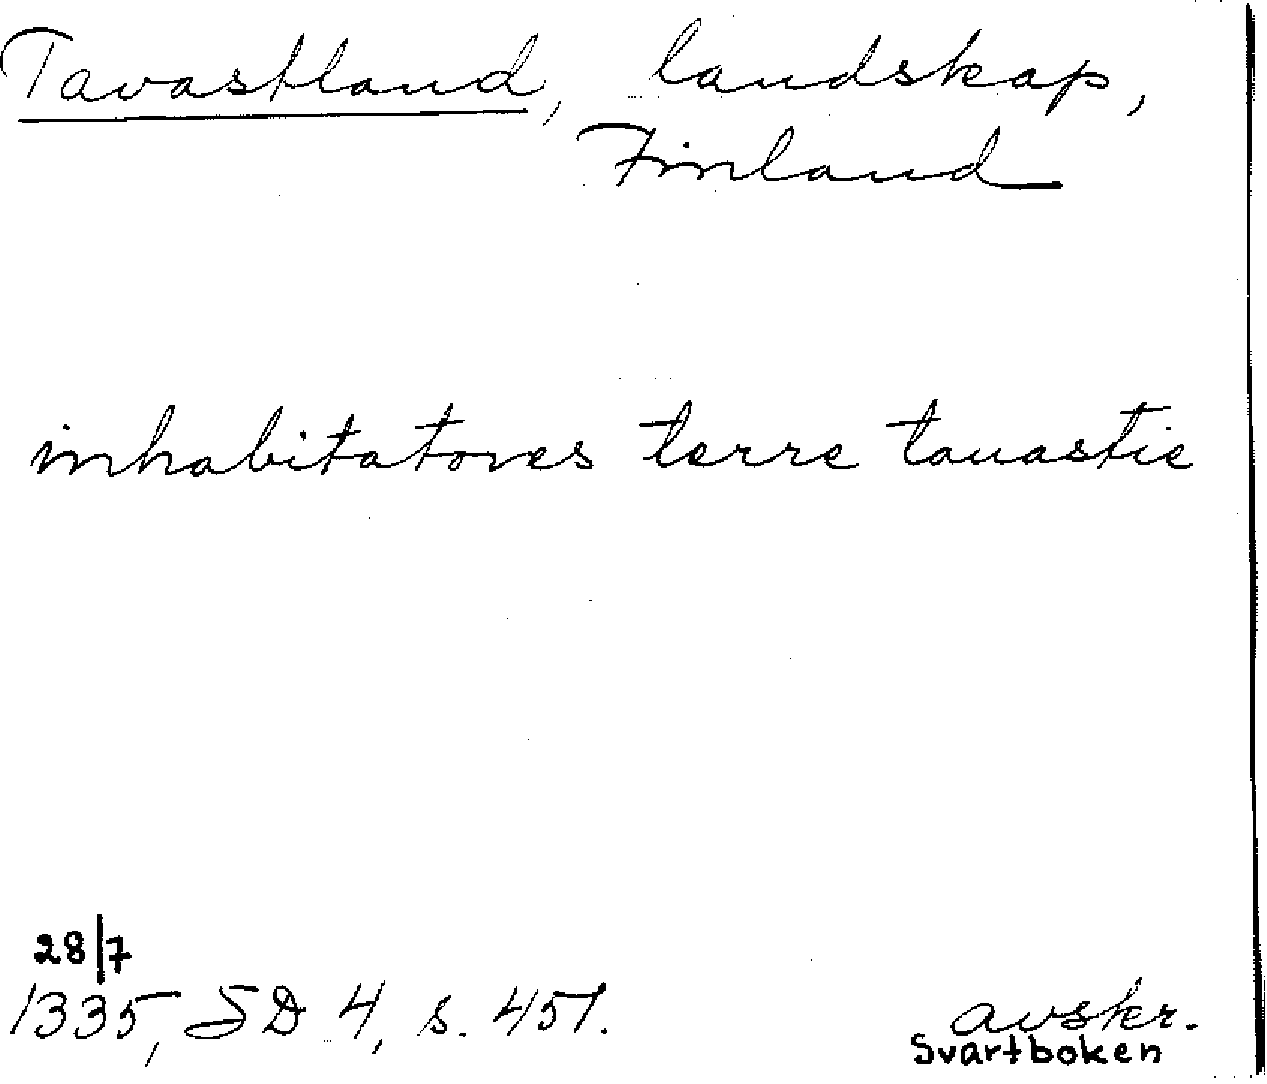 Tavastland, landskap,
Finland
inhabitatores terre tauastie
28/7
1335, SD 4, s. 451.
avskr.
Svartboken